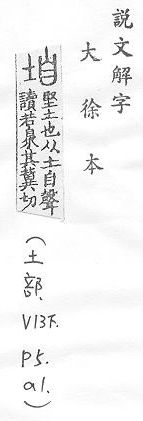 説文解字
大徐本
垍 堅土也从土自聲
讀若臮其冀切
(土部. V13下. P5. a1.)